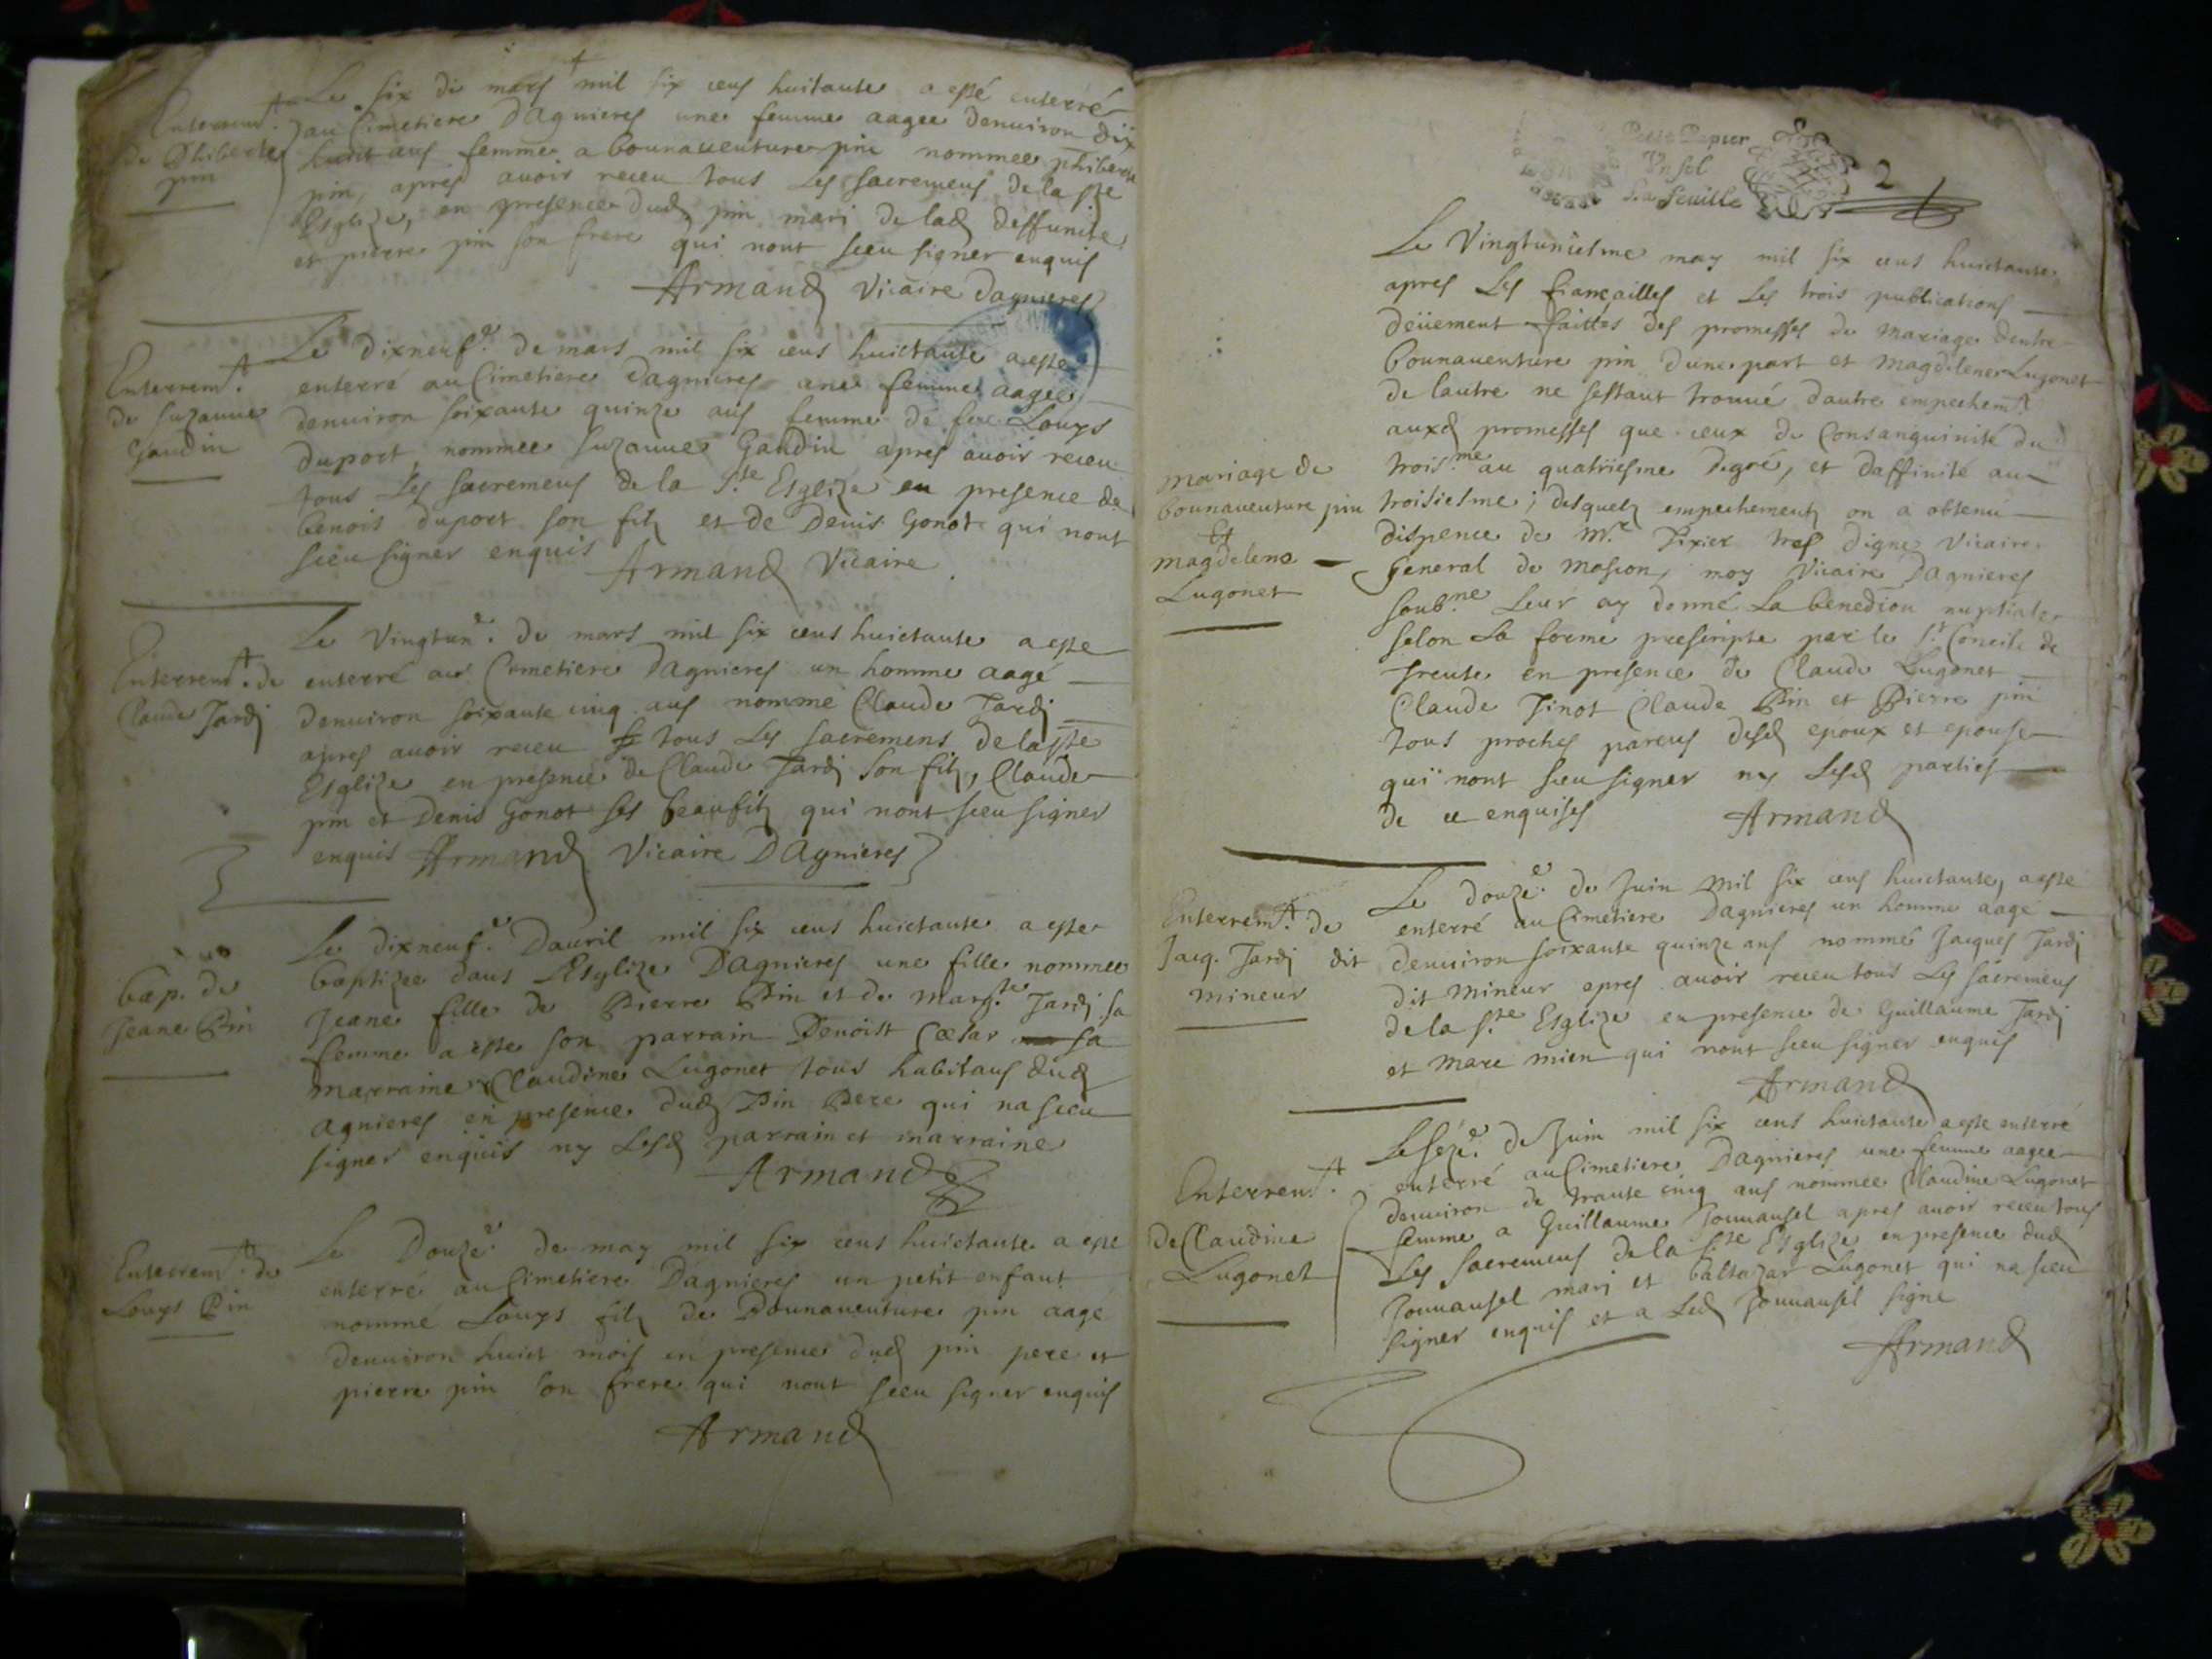 Enterremt.
de Phiberte
pin
Le six de mars mil six cens huitante a esté enterré
au Cimetiere Dagnieres une femme aagee denuiron dix
huict ans femme a bounauenture pin nommee phiberte
pin, apres auoir receu tous Les sacremens de la ste
Esglize, en presence dud pin mari de lad deffunite
et pierre pin son frere qui nont sceu signer enquis
Armand Vicaire dagnieres
Enterremt.
de Suzanne
Gaudin
Le dixneufe. de mars mil six cens huictante a este
enterré au Cimetiere dagnieres une femme aagee
denuiron soixante quinze ans femme de feu Louys
duport nommee Suzanne Gaudin apres auoir receu
tous Les sacremens de la Ste Esglize en presence de
benois duport son filz et de Denis Gonot qui nont
sceu signer enquis
Armand Vicaire
Enterremt. de
Claude Jardj
Le Vingtune. de mars mil six cens huictante a este
enterré au Cimetiere dagnieres un homme aagé
denuiron soixante cinq ans nommé Claude Jardj
apres auoir receu tous Les sacremens de la ste
Esglize en presence de Claude Jardj son filz, Claude
pin et Denis Gonot ses beaufilz qui nont sceu signer
enquis Armand Vicaire DAgnieres
bap. de
Jeane Pin
Le dixneufe. Dauril mil six cens huictante a este
baptizee dans LEsglize Dagnieres une fille nommee
Jeane fille de Pierre Pin et de Margte Jardj sa
femme a este son parrain Benoist Cæsar sa
marraine Claudine Lugonet tous habitans dud
agnieres en presence dud Pin Pere qui na sceu
signer enquis ny Lesd parrain et marraine
Armand
Enterremt. de
Louys Pin
Le Douzee. de may mil six cens huictante a este
enterré au Cimetiere Dagnieres un petit enfant
nommé Louys filz de Bounauenture pin aagé
denuiron huict mois en presence dud pin pere et
pierre pin son frere qui nont sceu signer enquis
Armand
Petit Papier
Un sol
La feuille
2
mariage de
bounauenture pin
Et
magdelene
Lugonet
Le Vingtuniesme may mil six cens huictante
apres Les fiançailles et Les trois publications
deüement faittes des promesses de mariage dentre
bounauenture pin dune part et magdelene Lugonet
de lautre ne sestant trouué dautre empechemt
auxd promesses que ceux de Consanguinité du
troisme au quatriesme degré, et daffinité au
troisiesme; desquelz empechementz on a obtenu
dispence de Mr. Tixier tres digne Vicaire
general de Mascon, moy Vicaire Dagnieres
soubne Leur ay donné La benediction nuptiale
selon La forme prescripte par le St Concile de
Trente en presence de Claude Lugonet
Claude Tinot Claude Pin et Pierre pin
tous proches parens desd epoux et epouse
qui nont sceu signer ny Lesd parties
de ce enquises
Armand
Enterremt. de
Jacq. Jardj dit
mineur
Le douzee. de Juin mil six cens huictante, a esté
enterré au Cimetiere Dagnieres un homme aagé
denuiron soixante quinze ans nommé Jacques Jardj
dit Mineur apres auoir receu tous Les sacremens
de la Ste Esglize en presence de Guillaume Jardj
et Marc mien qui nont sceu signer enquis
Armand
Enterremt.
de Claudine
Lugonet
Le sezee. de Juin mil six cens huictante a este enterré
enterré au Cimetiere Dagnieres une femme aagee
denuiron de trante cinq ans nommee Claudine Lugonet
femme a Guillaume Jouuansel apres auoir receu tous
Les sacremens de la Ste Esglize en presence dud
Jouuansel marj et baltazar Lugonet qui na sceu
signer enquis et a Led Jouuansel signe
Armand